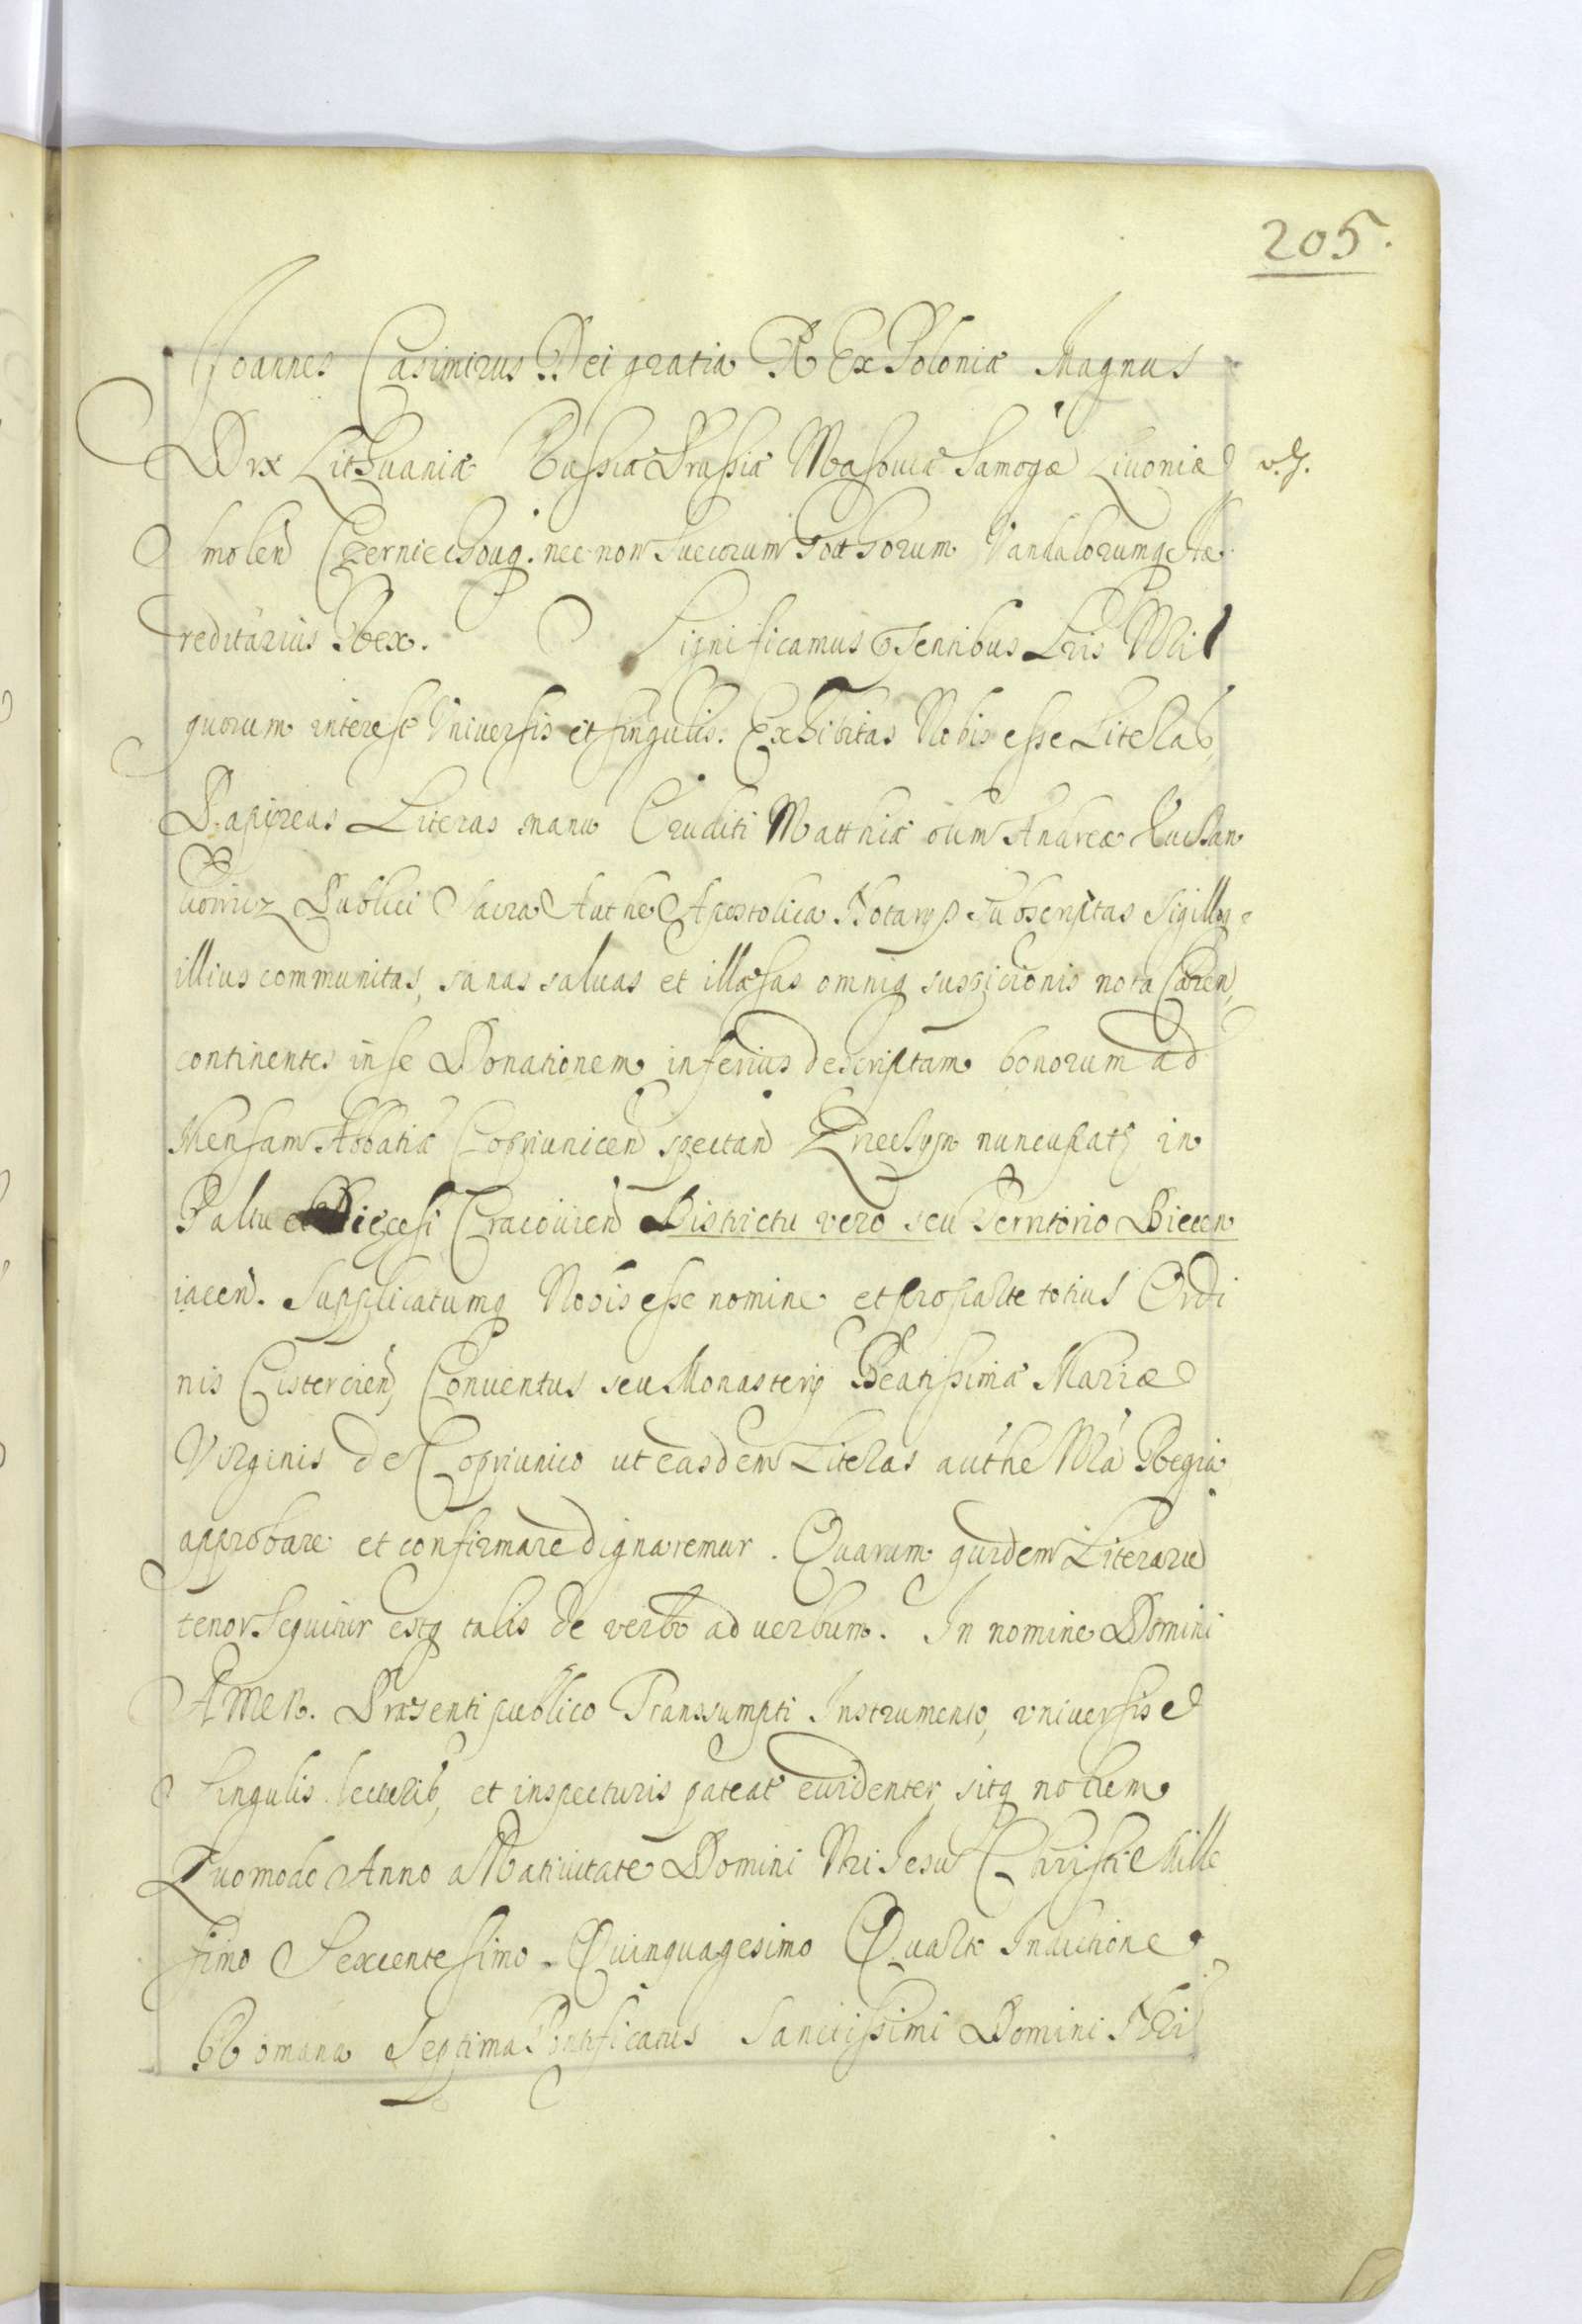 205.
Joannes Casimirus Dei gratia REx Poloniæ Magnus
Dvx Lithuaniæ Russiæ Prussiæ Masouiæ Samogæ Liuoniæ
Smolen Czerniechouq. nec non Suecorum Gotthorum Vandalorumq Hæ
reditarius Rex. Significamus Psentibus Lris Nris
quorum interest Vniuersis et singulis. Exhibitas Nobis esse Literas
Papireas Literas manu Eruditi Matthiæ olim Andreæ
Publici Sacra Authe Apostolica Notarij subscriptas Sigilloq
illius communitas, sanas saluas et illæsas omniq suspicionis nota Caren,
continentes in se Donationem inferius descriptam bonorum ad
Mensam Abbatiæ Coprivnicen spectan nuncupat in
Paltu et Diæcesi Cracouien Districtu vero seu Territorio Biecen
iacen. Supplicatumq Nobis esse nomine et pro parte totius Ordi
nis Cistercien, Conuentus seu Monasterij Beatissimæ Mariæ
Virginis de Coprivnico ut easdem Literas authe Nra Regia
approbare et confirmare dignaremur. Quarum quidem Literaru
tenor sequitur estq talis de verbo ad uerbum. In nomine Domini
Amen. Præsenti publico Transsumpti Instrumento, vniuersis et
singulis lecturis, et inspecturis pateat euidenter, sitq notum
Quomodo Anno a Natiuitate Domini Nri Jesu Christi Mille
simo Sexcentesimo Quinquagesimo Quarto Indictione
Romana Septima Pontificatus Sanctissimi Domini Nri